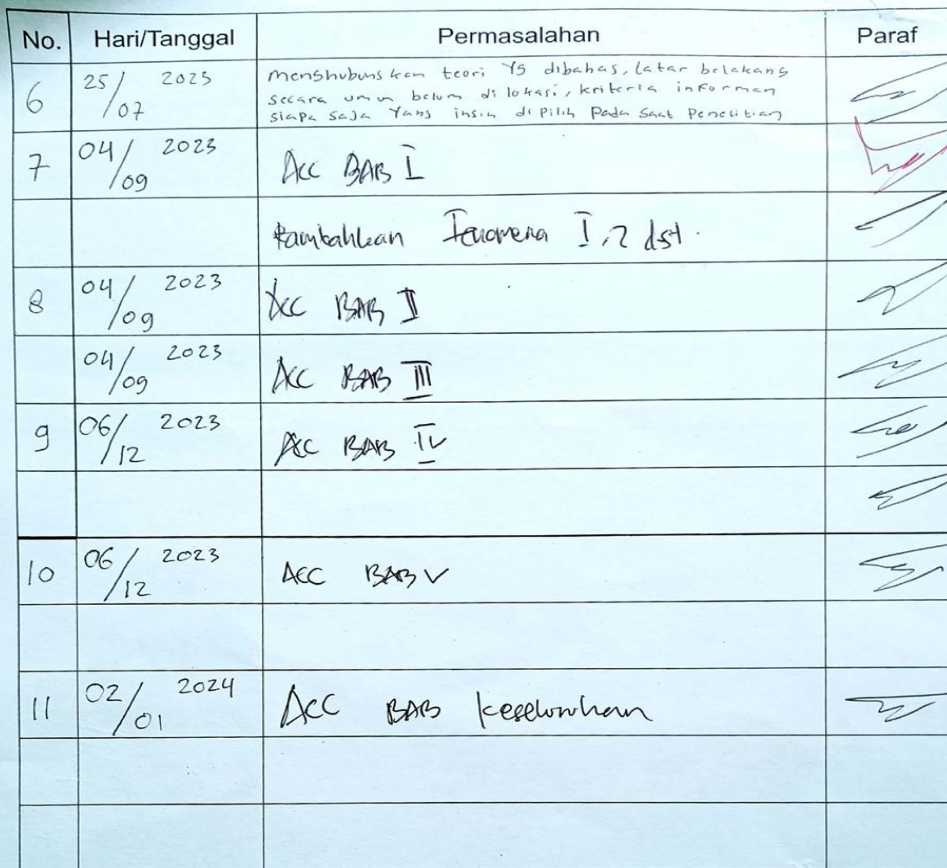 No. Hari/Tanggal Permasalahan Paraf
6 25/07 2023 menghubungkan teori yg dibahas, latar belakang
secara umum belum di lokasi, kriteria informan
siapa saja yang ingin di pilih pada saat penelitian
7 04/09 2023 Acc BAB I
tambahkan Fenomena I, 2 dst.
8 04/09 2023 Acc BAB II
04/09 2023 Acc BAB III
9 06/12 2023 Acc BAB IV
10 06/12 2023 Acc BAB V
11 02/01 2024 Acc BAB keseluruhan